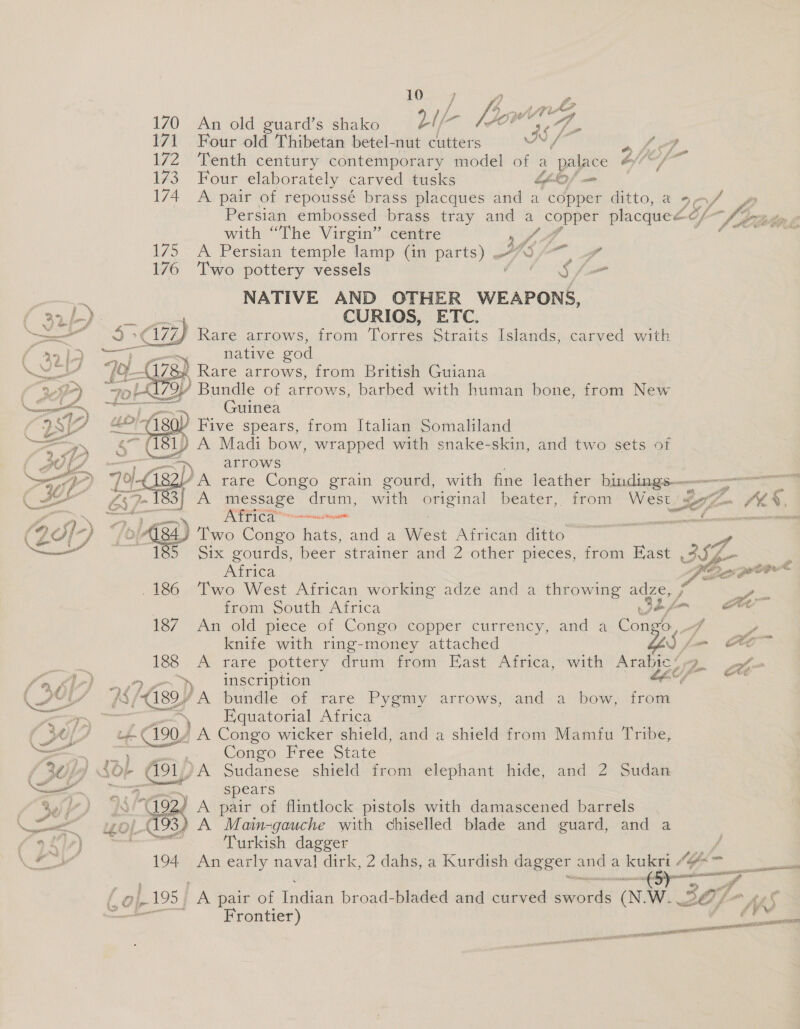 10
170 An old guard's shako
171 Four old Thibetan betel-nut cutters
172 Tenth century contemporary model of a palace
173 Four elaborately carved tusks
174 A pair of repoussé brass placques and a copper ditto, a
Persian embossed brass tray and a copper placque
with "The Virgin" centre
175 A Persian temple lamp (in parts)
176 Two pottery vessels
NATIVE AND OTHER WEAPONS,
CURIOS, ETC.
177 Rare arrows, from Torres Straits Islands, carved with
native god
178 Rare arrows, from British Guiana
179 Bundle of arrows, barbed with human bone, from New
Guinea
180 Five spears, from Italian Somaliland
181 A Madi bow, wrapped with snake-skin, and two sets of
arrows
182 A rare Congo grain gourd, with fine leather bindings
183 A message drum, with original beater, from West
Africa
184 Two Congo hats, and a West African ditto
185 Six gourds, beer strainer and 2 other pieces, from East
Africa
186 Two West African working adze and a throwing adze,
from South Africa
187 An old piece of Congo copper currency, and a Congo
knife with ring-money attached
188 A rare pottery drum from East Africa, with Arabic
inscription
189 A bundle of rare Pygmy arrows, and a bow, from
Equatorial Africa
190 A Congo wicker shield, and a shield from Mamfu Tribe,
Congo Free State
191 A Sudanese shield from elephant hide, and 2 Sudan
spears
192 A pair of flintlock pistols with damascened barrels
193 A Main-gauche with chiselled blade and guard, and a
Turkish dagger
194 An early naval dirk, 2 dahs, a Kurdish dagger and a kukri
(5)
195 A pair of Indian broad-bladed and curved swords (N.W.
Frontier)